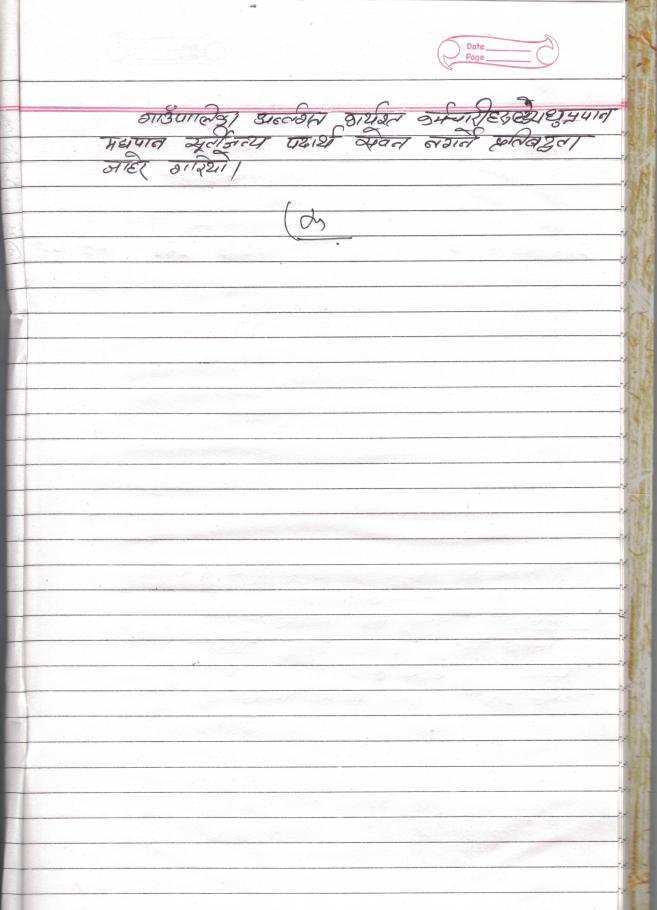 Date
Page
गाउँपालिका अन्तर्गत कार्यरत कर्मचारीहरूले धुम्रपान
मध्यपान सूर्तीजन्य पदार्थ सेवन नगर्ने प्रतिबद्धता
जाहेर गरियो।